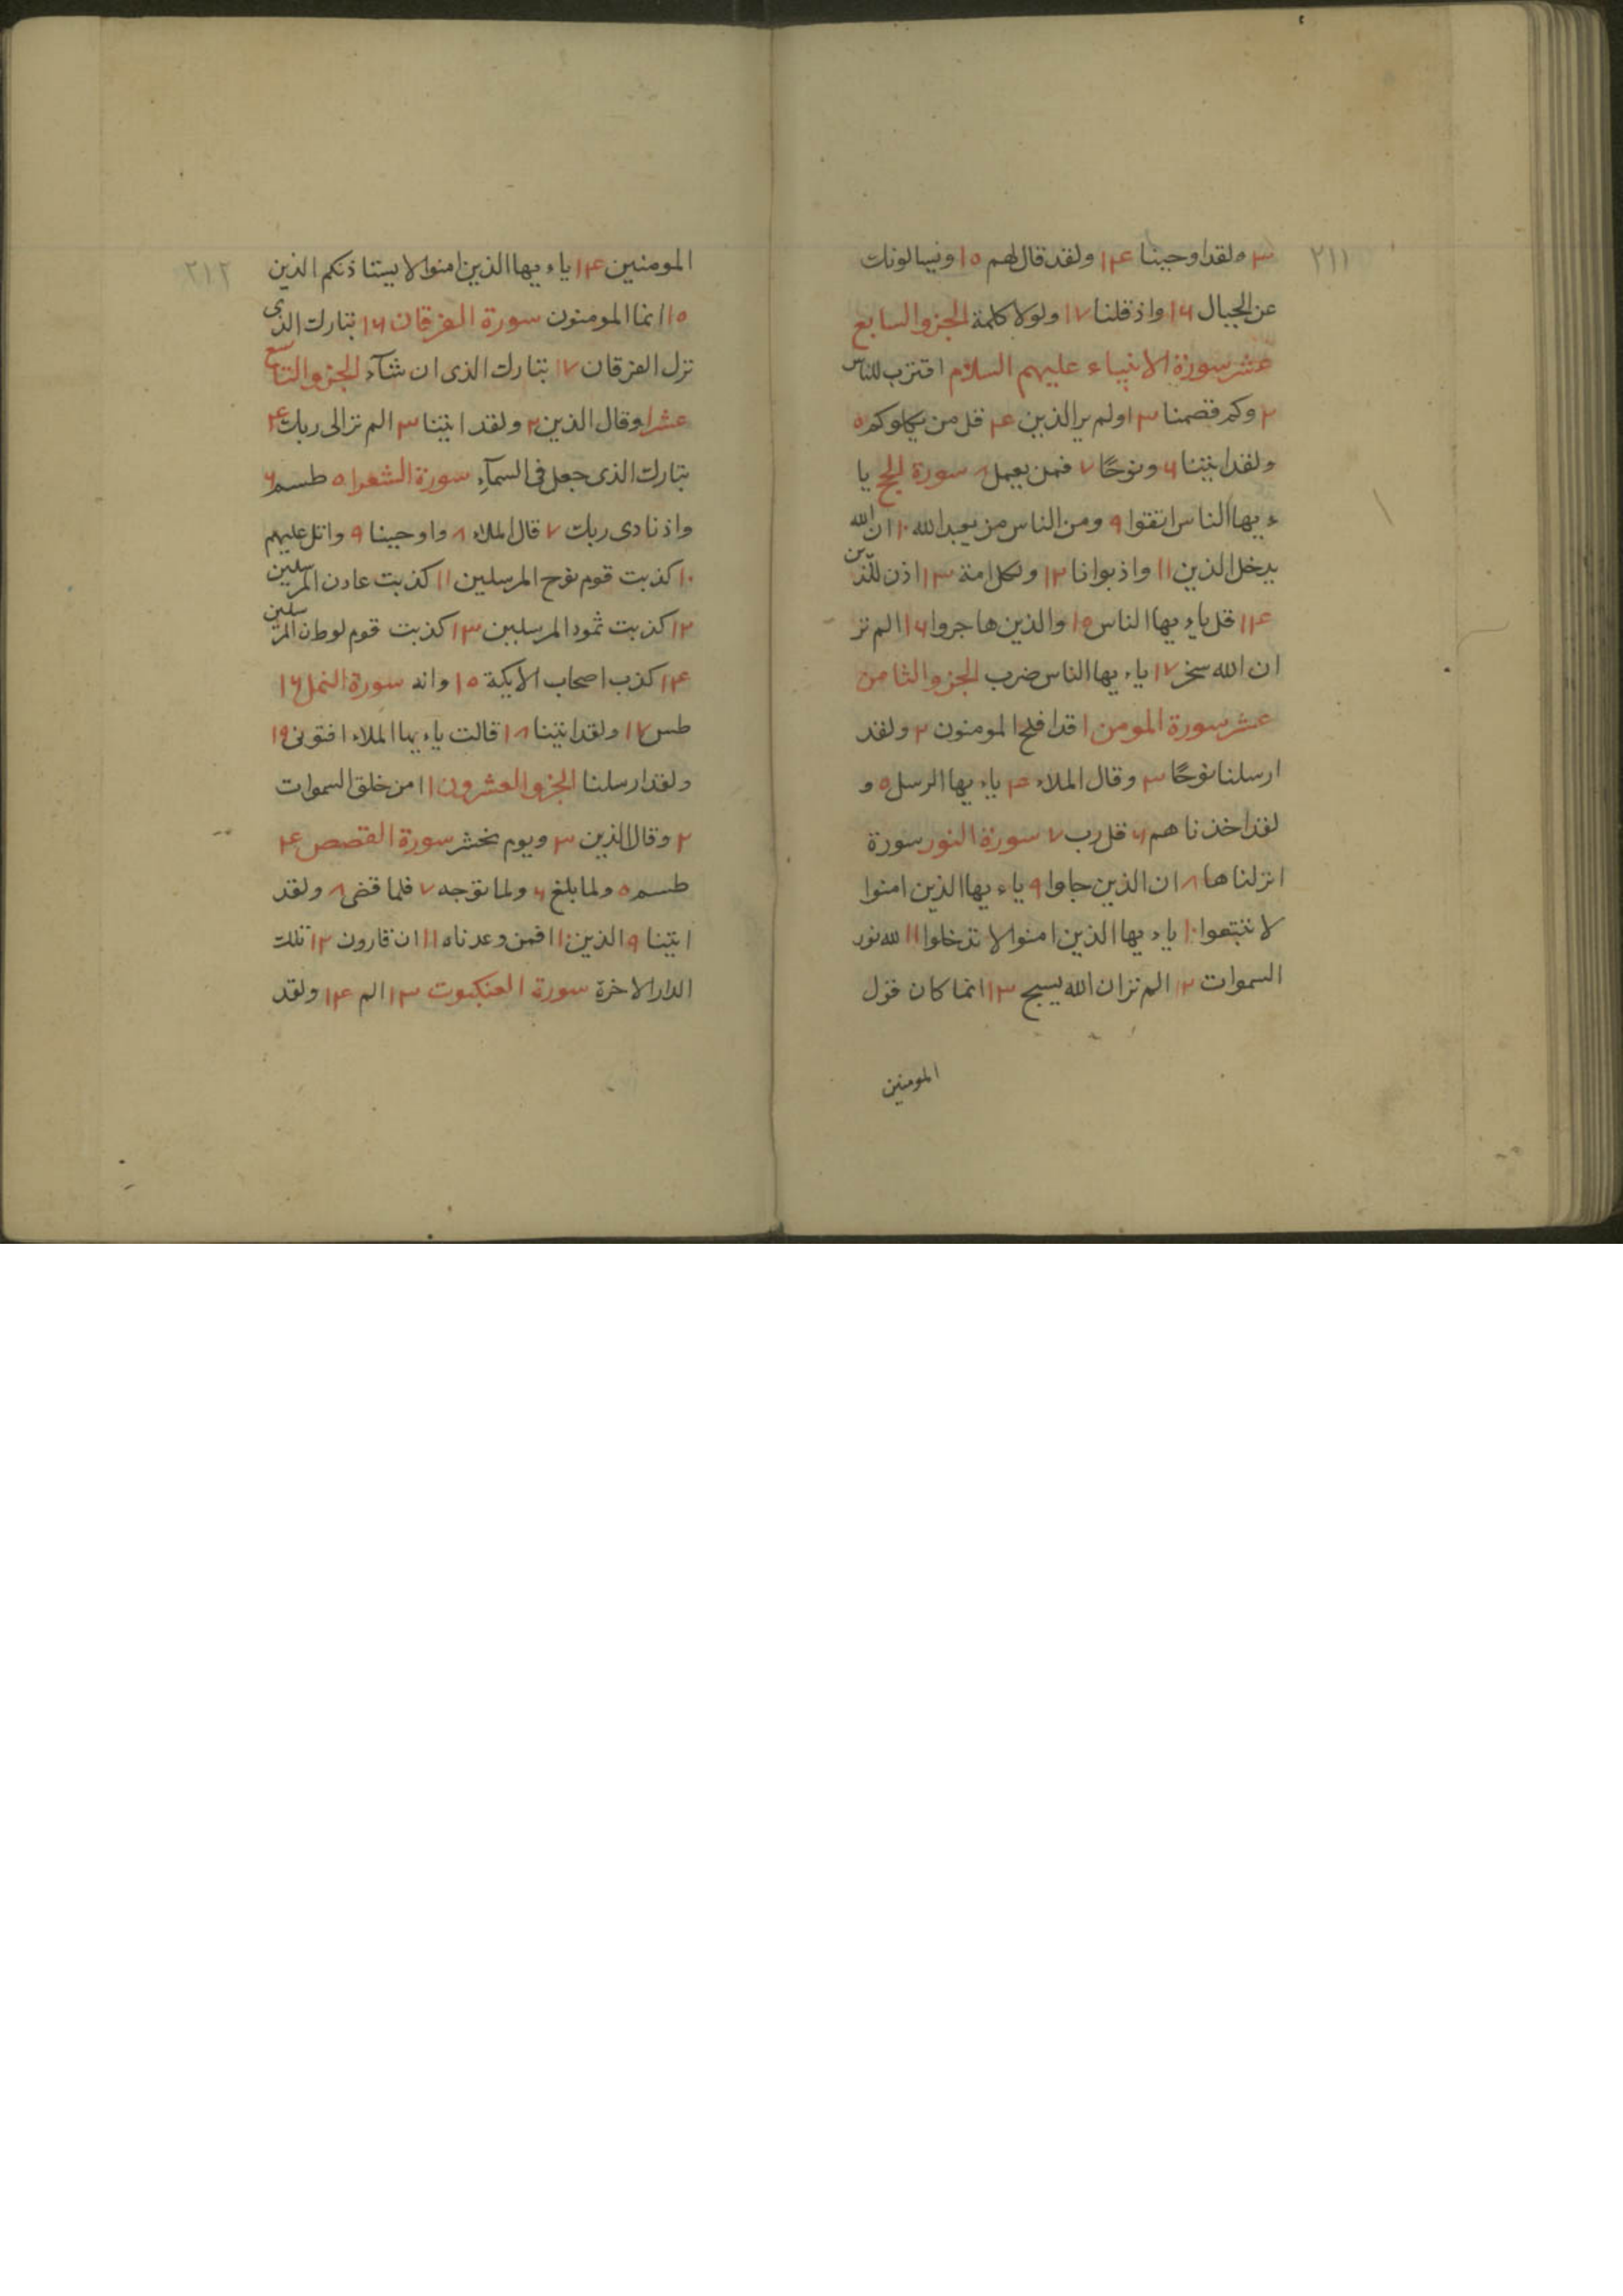 ٢١١
٣ ولقد اوحينا ١٤ ولقد قال لهم ١٥ ويسالونك
عن الجبال ١٦ واذ قلنا ١٧ ولولا كلمة الجزو السابع
عشر سورة الانبياء عليهم السلام اقترب للناس
٢ وكم قصمنا ٣ اولم ير الذين ٤ قل من يكلوكم ٥
ولقد اتينا ٦ ونوحًا ٧ فمن يعمل ٨ سورة الحج يا
ء يها الناس اتقوا ٩ ومن الناس من يعبد الله ١٠ ان الله
يدخل الذين ١١ واذ بوانا ١٢ ولكل امة ١٣ اذن للذين
١٤ قل ياء يها الناس ١٥ والذين هاجروا ١٦ الم تر
ان الله سخر ١٧ ياء يها الناس ضرب الجزو الثامن
عشر سورة المومن ١ قد افلح المومنون ٢ ولقد
ارسلنا نوحًا ٣ وقال الملاء ٤ ياء يها الرسل ٥ و
لقد اخذناهم ٦ قل رب ٧ سورة النور سورة
انزلناها ٨ ان الذين جاوا ٩ ياء يها الذين امنوا
لا تتبعوا ١٠ ياء يها الذين امنوا لا تدخلوا ١١ الله نور
السموات ١٢ الم تر ان الله يسبح ١٣ انما كان قول
المومنين
٢١٢
المومنين ١٤ ياء يها الذين امنوا لا يستاذنكم الذين
١٥ انما المومنون سورة الفرقان ١٦ تبارك الذى
نزل الفرقان ١٧ تبارك الذى ان شآء الجزو التاسع
عشر ١ وقال الذين ٢ ولقد اتينا ٣ الم تر الى ربك ٤
تبارك الذى جعل فى السمآء سورة الشعرا ٥ طسم ٦
واذ نادى ربك ٧ قال الملاء ٨ واوحينا ٩ واتل عليهم
١٠ كذبت قوم نوح المرسلين ١١ كذبت عادن المرسلين
١٢ كذبت ثمود المرسلين ١٣ كذبت قوم لوطن المرسلين
١٤ كذب اصحاب الايكة ١٥ وانه سورة النمل ١٦
طس ١٧ ولقد اتينا ١٨ قالت ياء يها الملاء افتونى ١٩
ولقد ارسلنا الجزو العشرون ١ امن خلق السموات
٢ وقال الذين ٣ ويوم نحشر سورة القصص ٤
طسم ٥ ولما بلغ ٦ ولما توجه ٧ فلما قضى ٨ ولقد
اتينا ٩ الذين ١٠ افمن وعدناه ١١ ان قارون ١٢ تلك
الدار الاخرة سورة العنكبوت ١٣ الم ١٤ ولقد